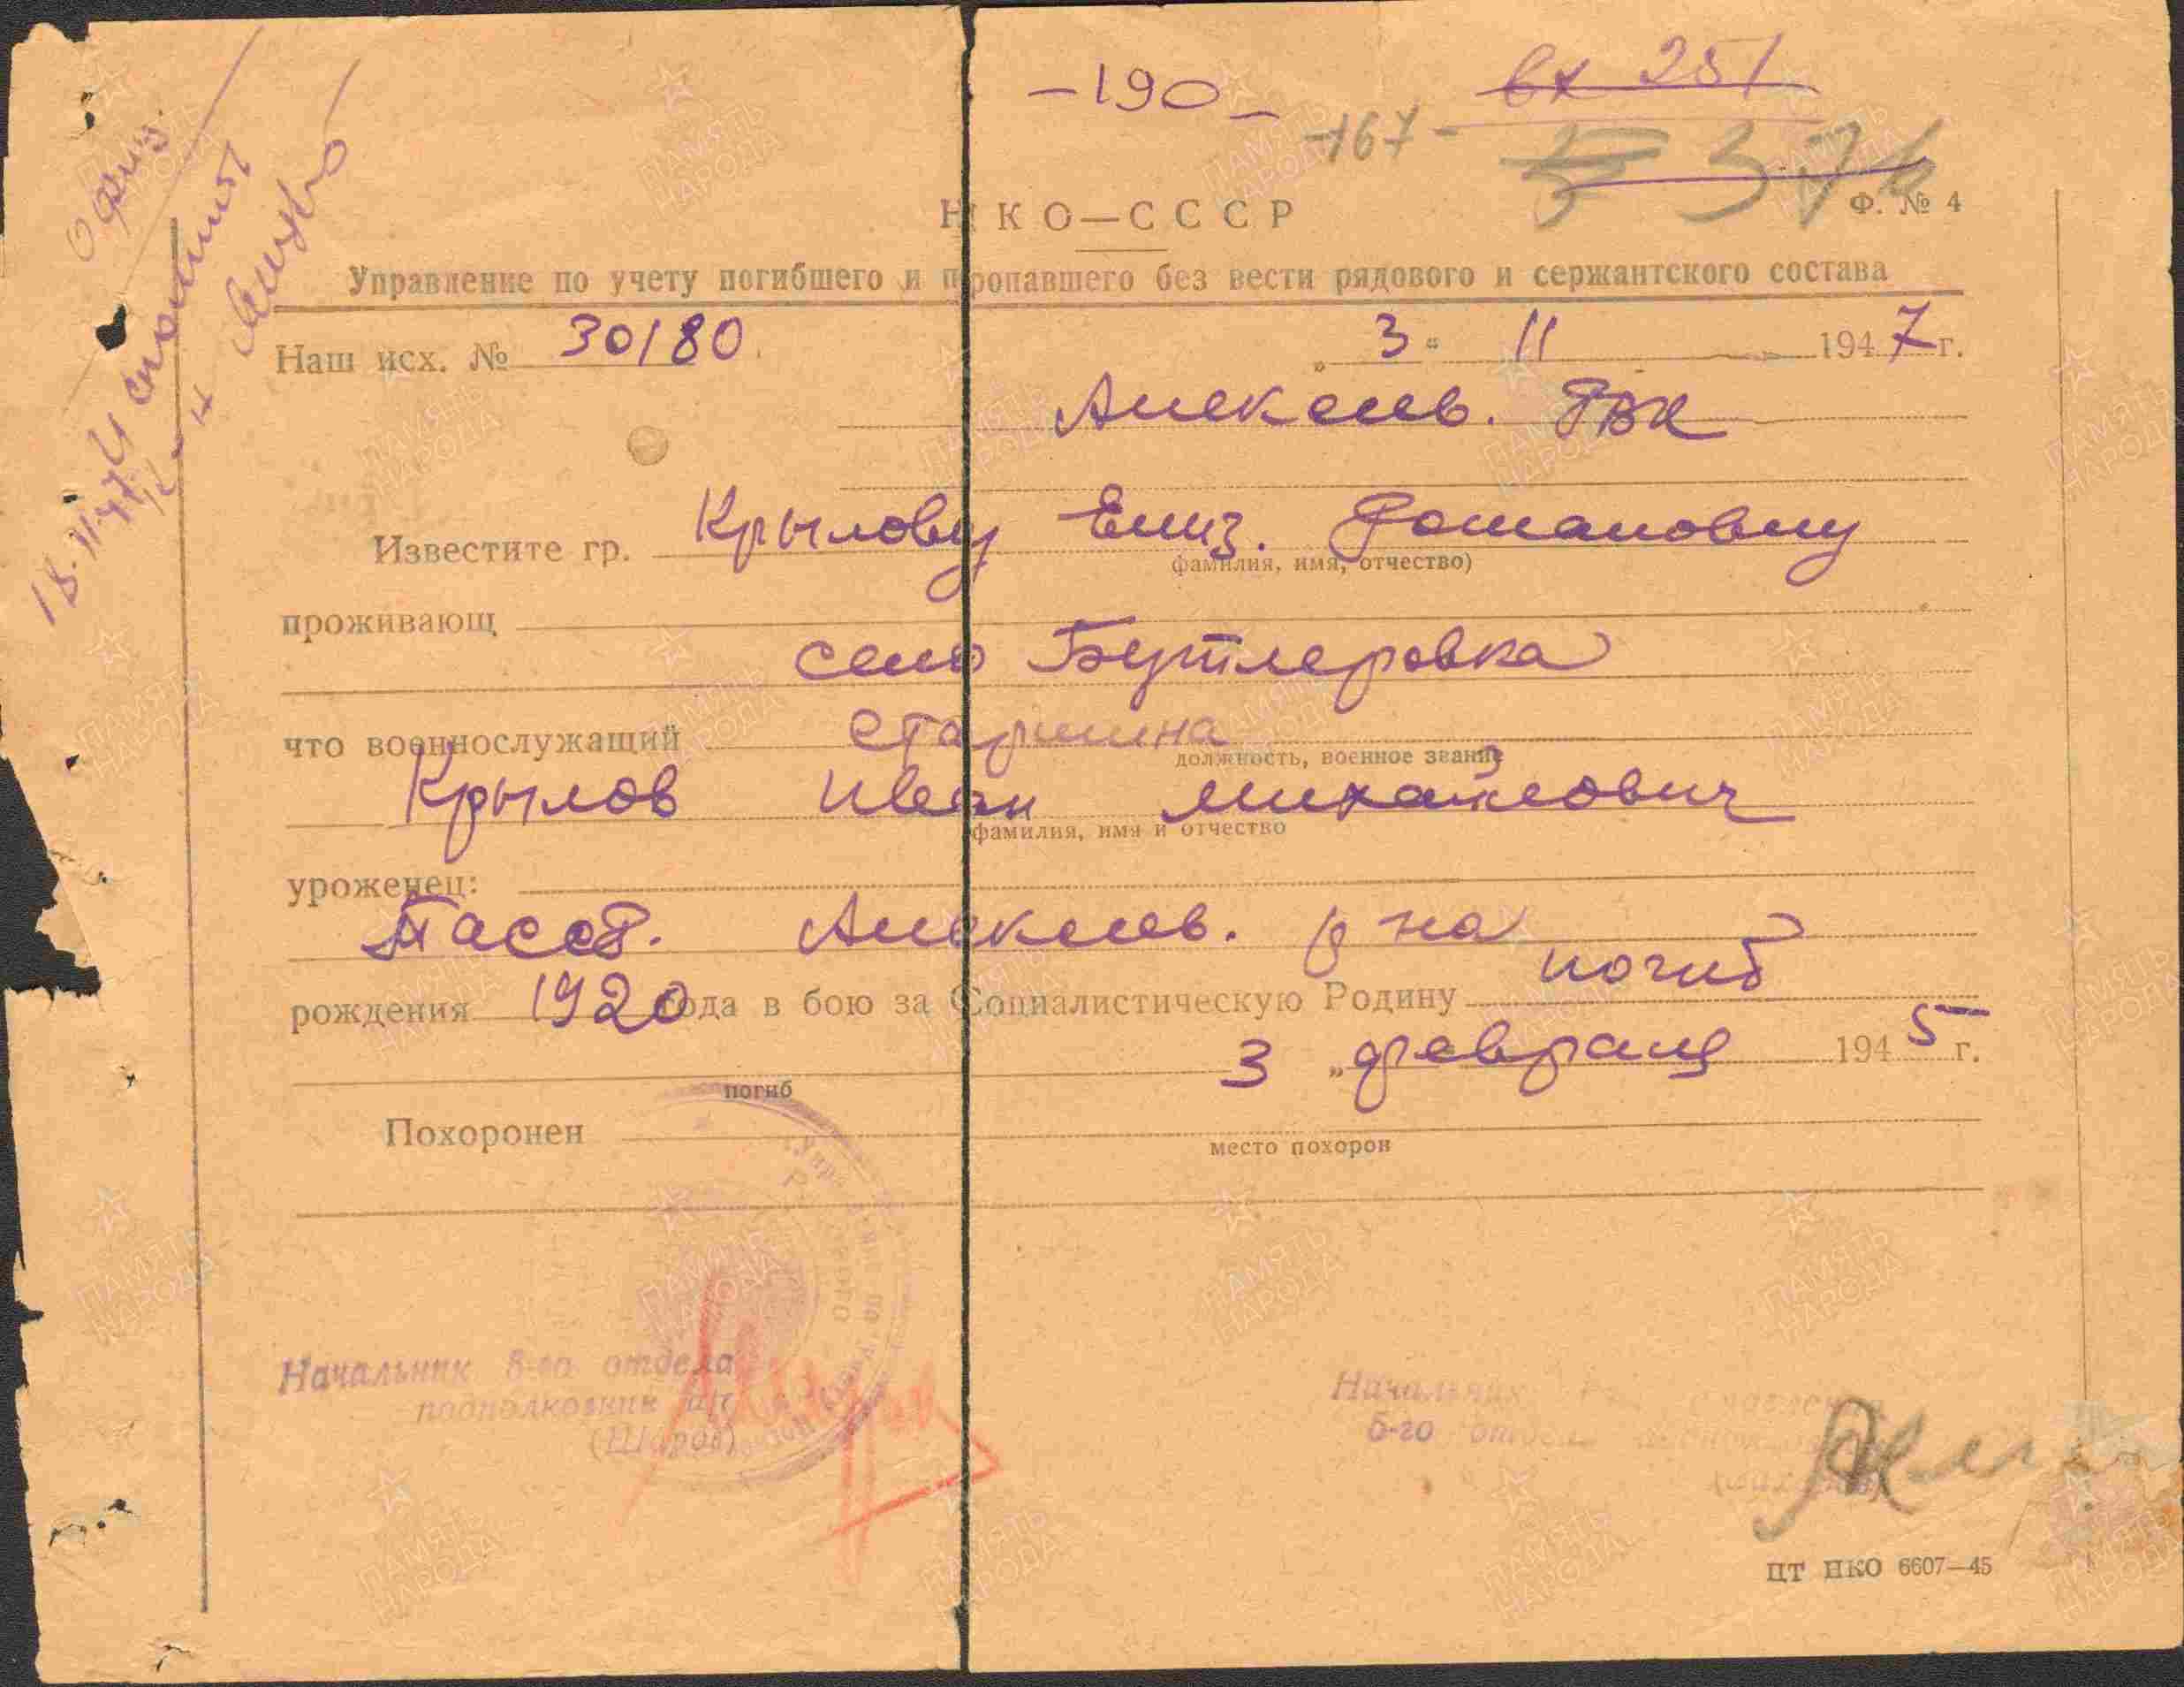 -190-
вх 251
-167-
НКО—СССР
Ф. № 4
Управление по учету погибшего и пропавшего без вести рядового и сержантского состава
Наш исх. № 30180 „3“ 11 1947 г.
Алексеев. РВК
Известите гр. Крылову Елиз. Романовну
фамилия, имя, отчество)
проживающ
село Бутлеровка
что военнослужащий старшина
должность, военное звание
Крылов Иван Михайлович
фамилия, имя и отчество
уроженец:
Тасср. Алексеев. р на
рождения 1920 года в бою за Социалистическую Родину погиб
3 „февраля 1945 г.
погиб
Похоронен
место похорон
Начальник 8-го отдела
подполковник
(Шаров)
Начальник
5-го отдела
ЦТ НКО 6607—45